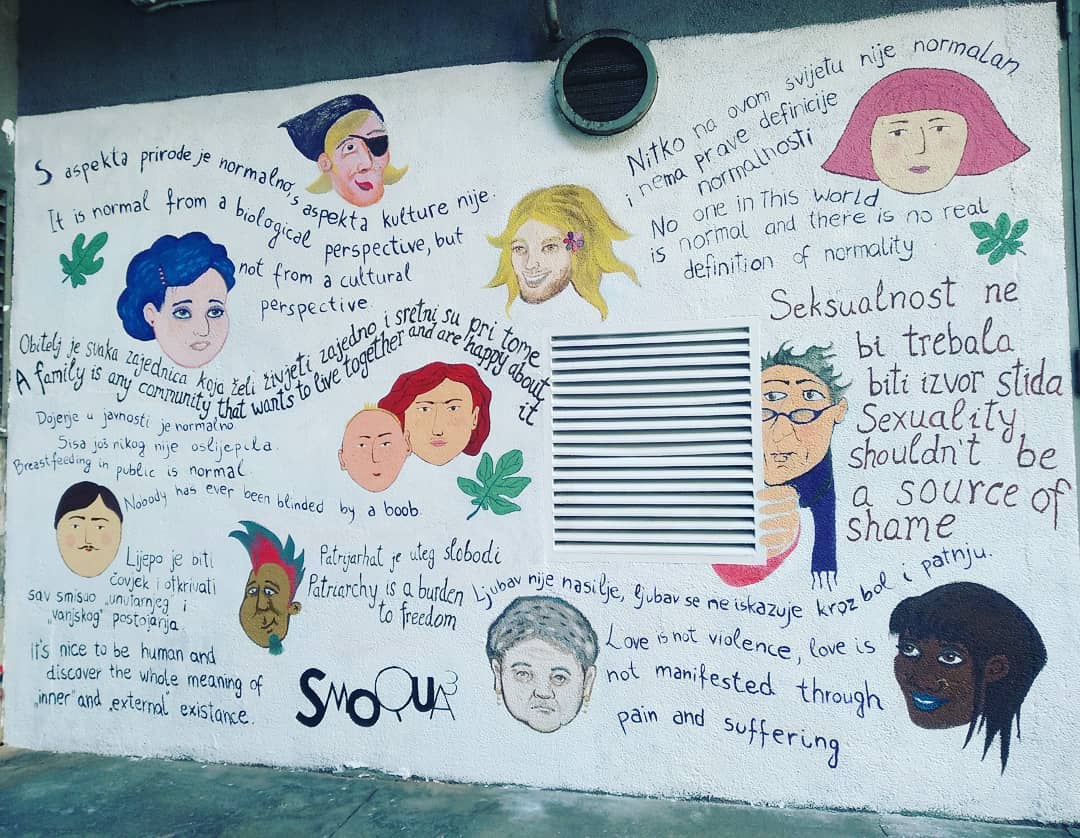 S aspekta prirode je normalno, s aspekta kulture nije.
It is normal from a biological
perspective, but
not from a cultural
perspective
Nitko na ovom svijetu nije normalan
i nema prave definicije
normalnosti
No one in This World
is normal and there is no real
definition of normality
Obitelj je svaka zajednica koja želi živjeti zajedno i sretni su pri tome
A family is any community that wants to live together and are happy about
it
Seksualnost ne
bi trebala
biti izvor stida
Sexuality
shouldn't be
a source of
shame
Dojenje u javnosti je normalno
Sisa još nikog nije oslijepila.
Breastfeeding in public is normal
Nobody has ever been blinded by a boob.
Lijepo je biti
čovjek i otkrivati
sav smisao „unutarnjeg" i
„vanjskog" postojanja.
it's nice to be human and
discover the whole meaning of
„inner" and „external" existance.
Patrijarhat je uteg slobodi
Patriarchy is a burden
to freedom
SMOQUA3
Ljubav nije nasilje, ljubav se ne iskazuje kroz bol i patnju.
Love is not violence, love is
not manifested through
pain and suffering